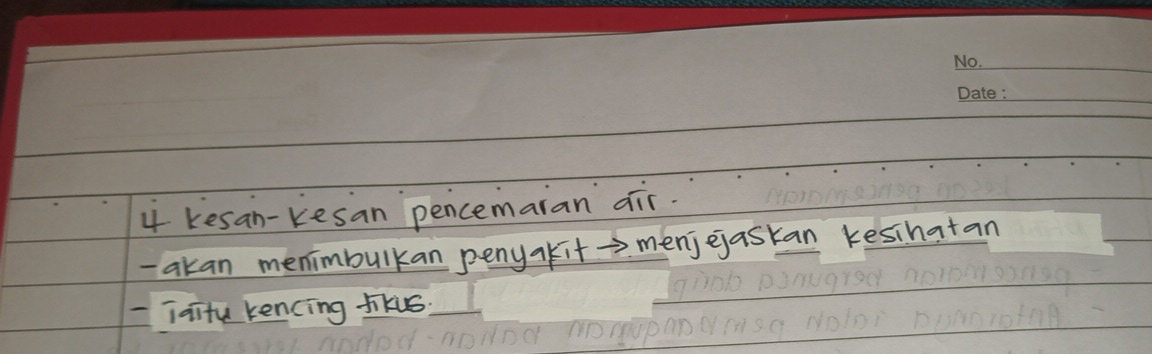 No.
Date :
4 kesan-kesan pencemaran air.
- akan menimbulkan penyakit → menjejaskan kesihatan
- iaitu kencing tikus.